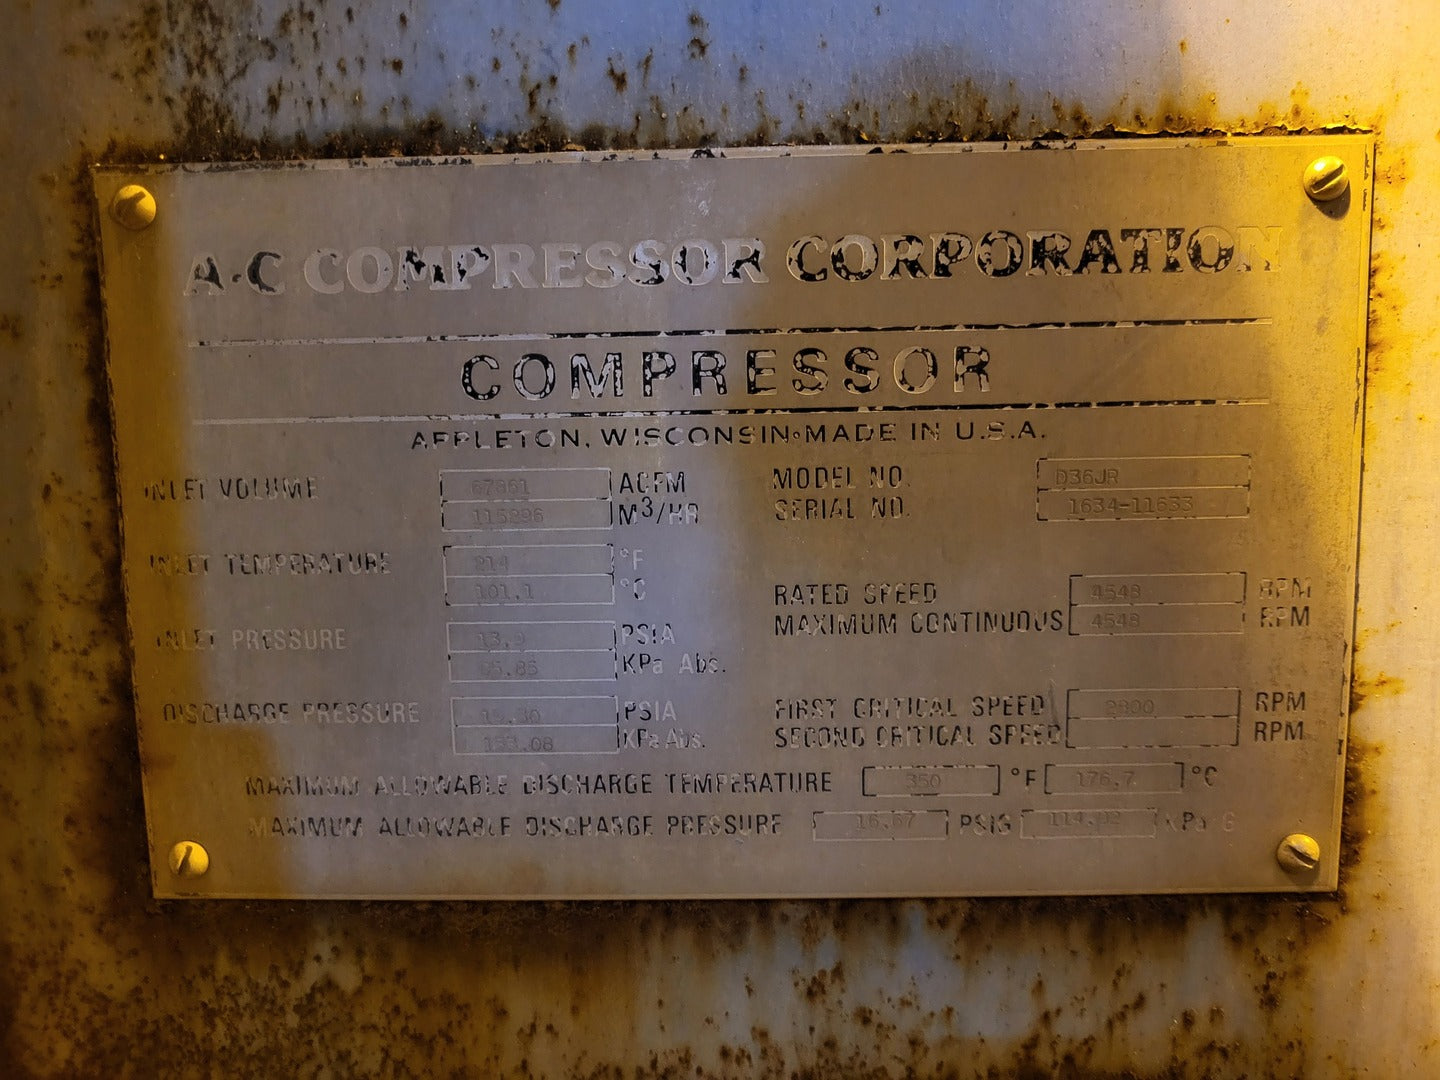 A-C COMPRESSOR CORPORATION
COMPRESSOR
APPLETON, WISCONSIN•MADE IN U.S.A.
INLET VOLUME 67861 ACFM
115296 M3/HR
MODEL NO. D36JR
SERIAL NO. 1634-11633
INLET TEMPERATURE 214 °F
101.1 °C
RATED SPEED 4548 RPM
MAXIMUM CONTINUOUS 4548 RPM
INLET PRESSURE 13.9 PSIA
95.85 KPa Abs.
DISCHARGE PRESSURE PSIA
133.08 KPa Abs.
FIRST CRITICAL SPEED RPM
SECOND CRITICAL SPEED RPM
MAXIMUM ALLOWABLE DISCHARGE TEMPERATURE 350 °F 176.7 °C
MAXIMUM ALLOWABLE DISCHARGE PRESSURE 16.67 PSIG KPa G